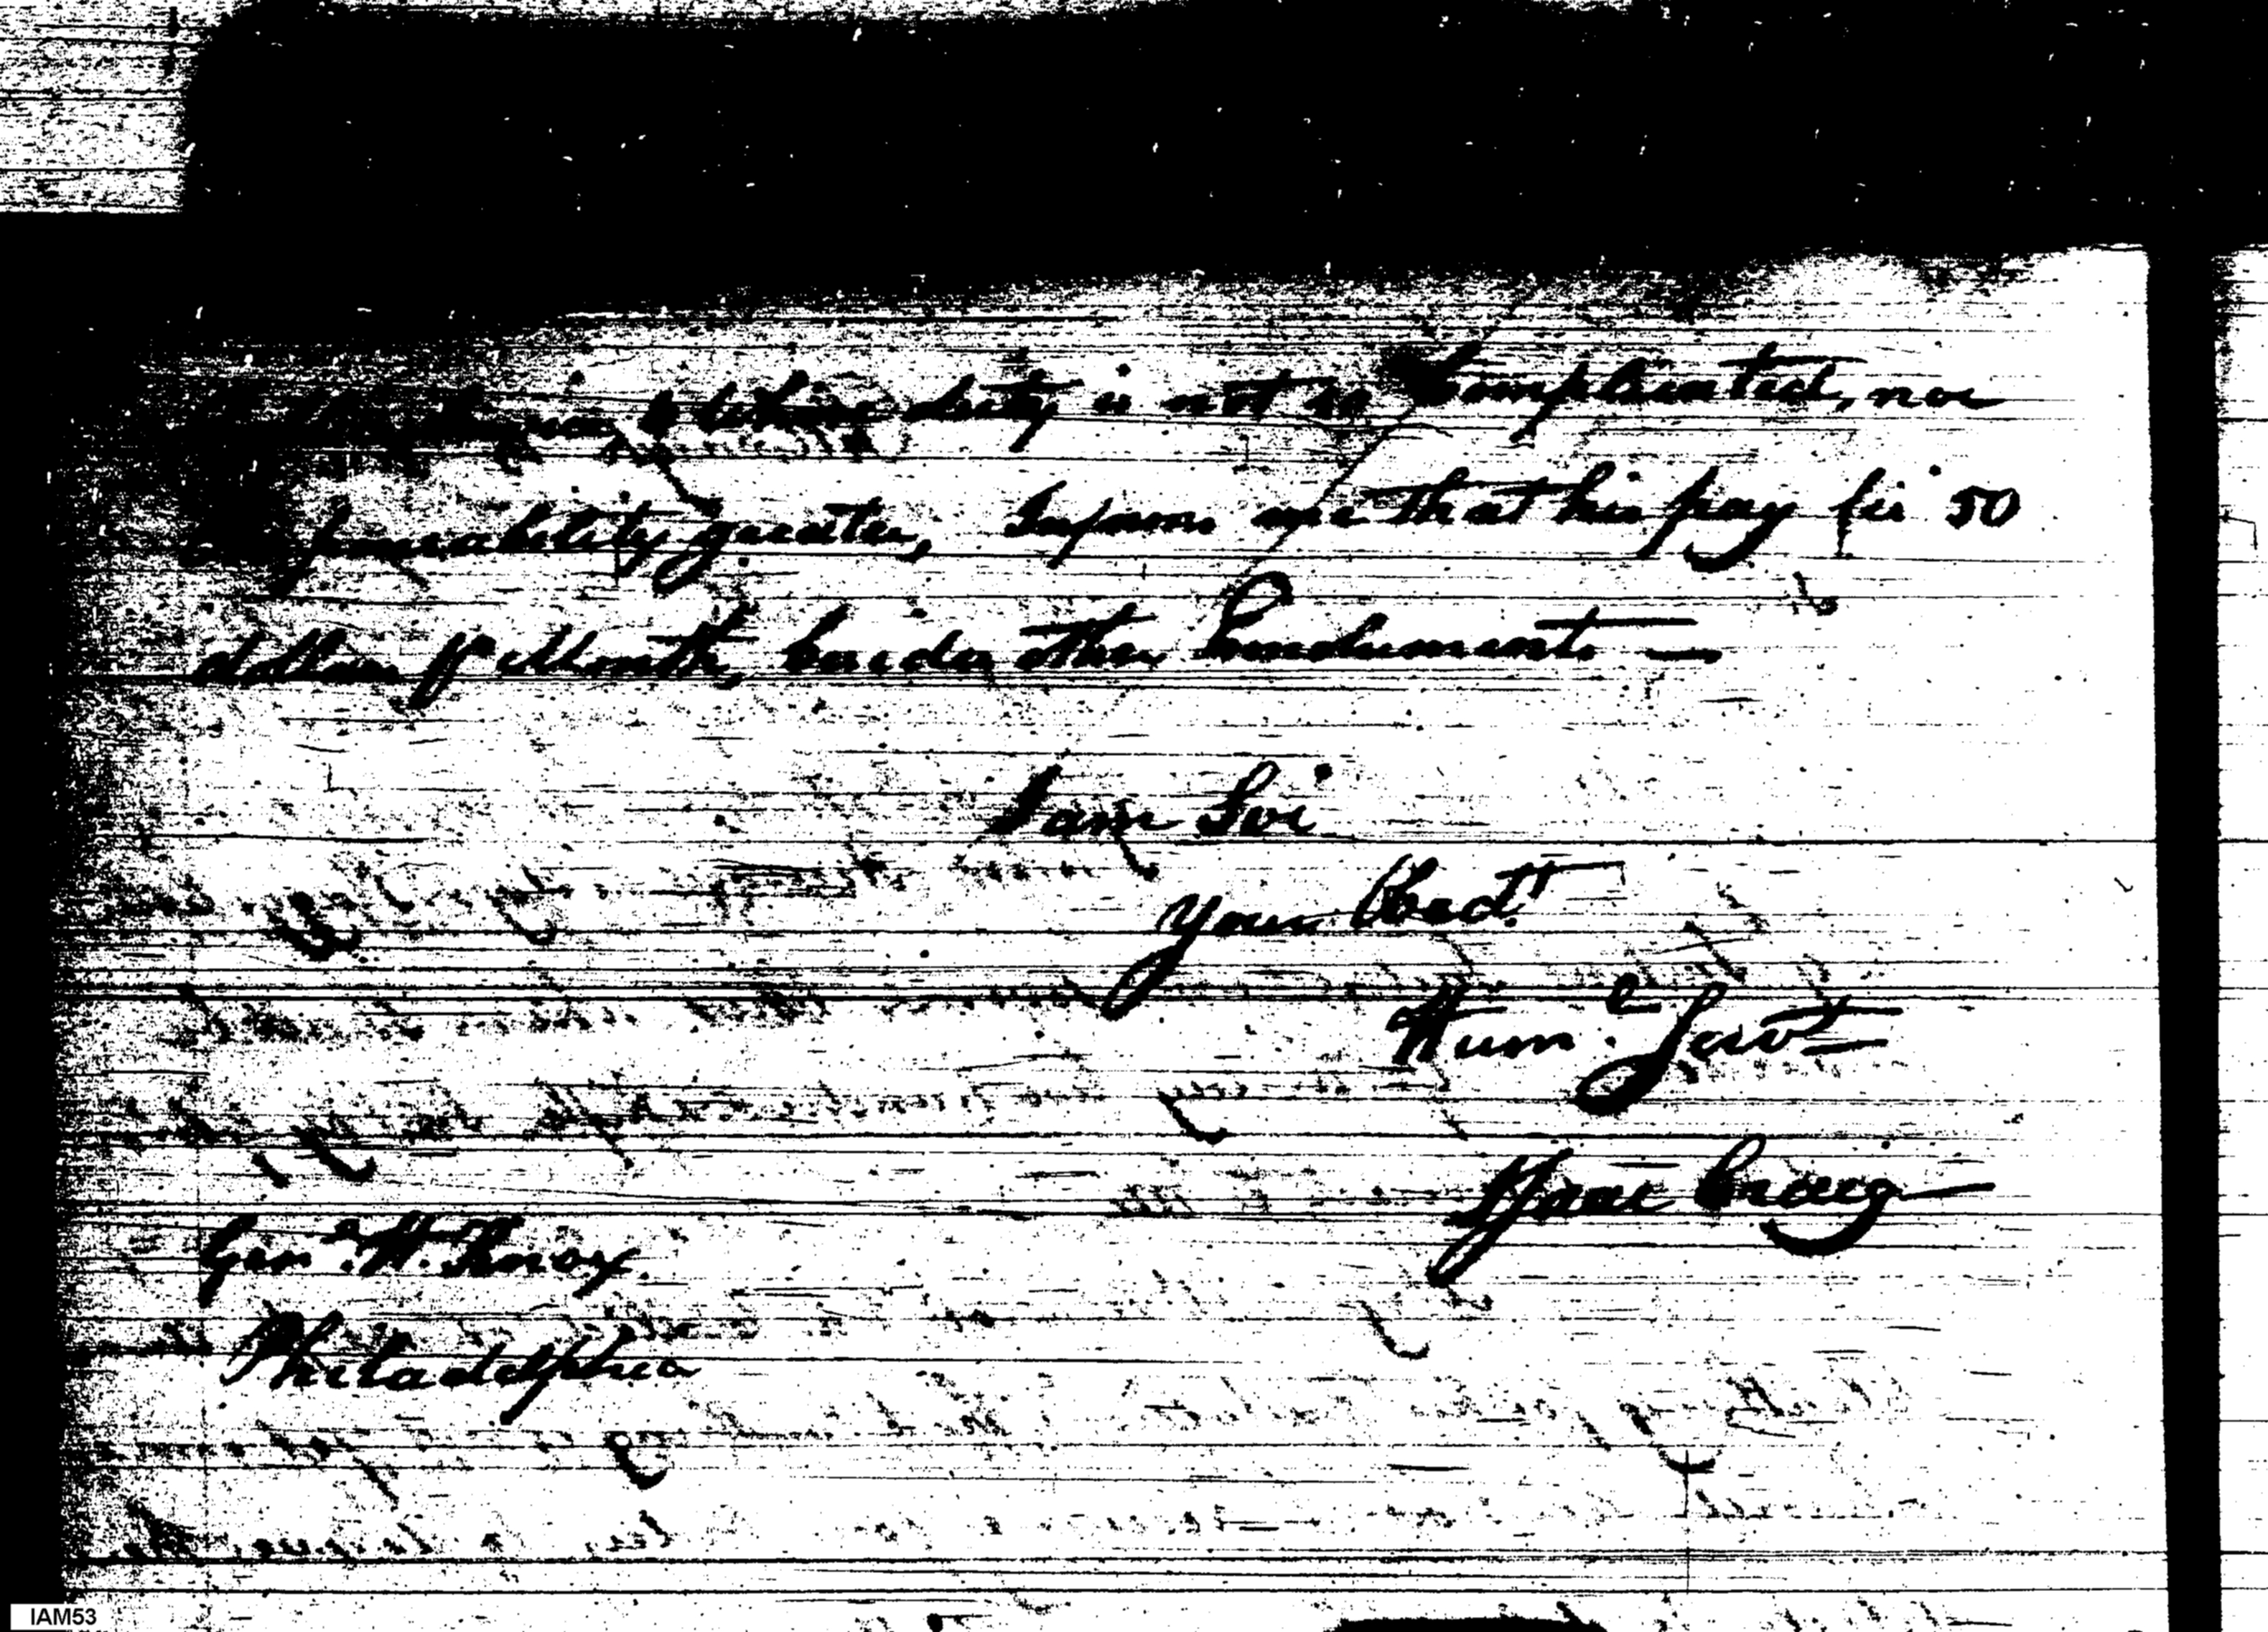 whose duty is not so Complicated, nor
greater, Informs me that his pay is 50
dollars pr Month, besides other Emoluments —
I am Sir
your Obedt
Humle Servt
Isaac Craig
Genl H. Knox
Philadelphia
IAM53